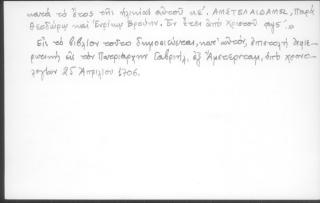 κατὰ τὸ ἔτος τῆς ἡλικίας αὐτοῦ κε΄. ΑΜΣΤΕΛΑΙΔΑΜΩΙ, Παρὰ
Θεοδώρῳ καὶ Ἑνρίκῳ Βρούιν. Ἐν ἔτει ἀπὸ Χριστοῦ αψϛ΄.
Εἰς τὸ βιβλίον τοῦτο δημοσιεύεται, κατ' αὐτὸς, ἐπιστολὴ
εἰς τὸν Πατριάρχην Γαβριήλ, ἐξ Ἀμστερνταμ, ὑπὸ χρονο-
λογίαν 25 Ἀπριλίου 1706.